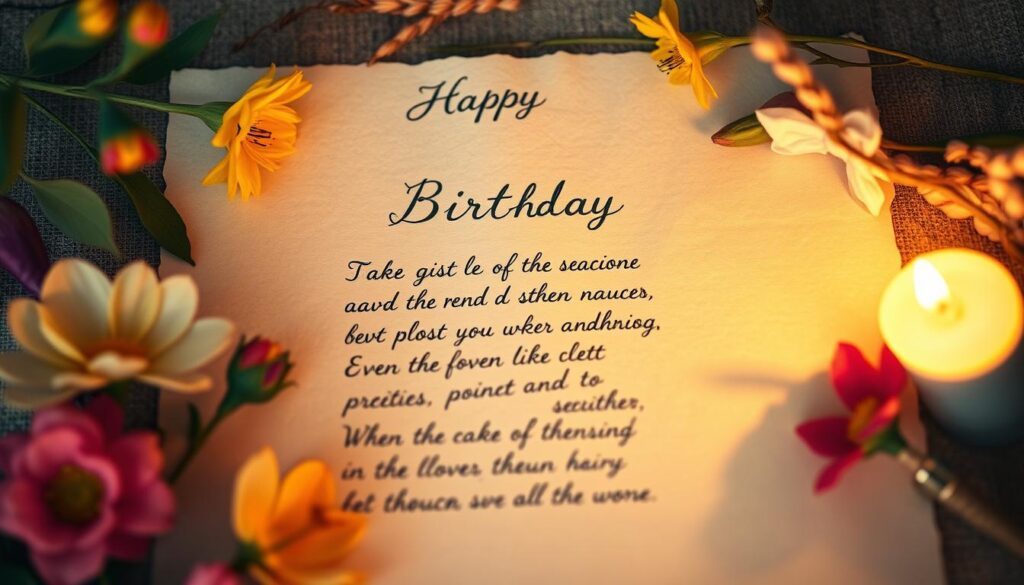 Happy
Birthday
Take gist le of the seacione
aavd the rend d sthen nauces,
bevt plost you wker andhniog.
Even the foven like clett
preities, poinet and to
secuither,
When the cake of thensing
in the lloves theun hairy
let thoucn sve all the wone.